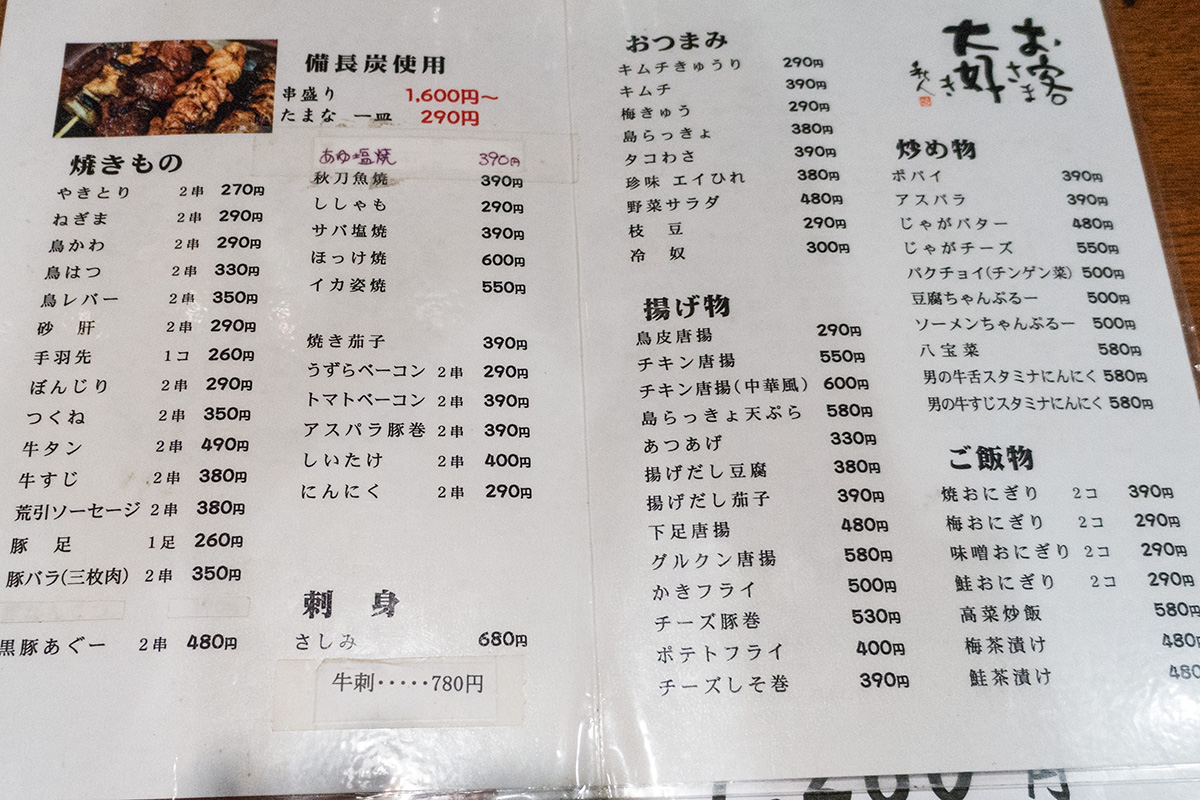 備長炭使用
串盛り 1.600円～
たまな 一皿 290円
焼きもの
やきとり 2串 270円
ねぎま 2串 290円
鳥かわ 2串 290円
鳥はつ 2串 330円
鳥レバー 2串 350円
砂肝 2串 290円
手羽先 1コ 260円
ぼんじり 2串 290円
つくね 2串 350円
牛タン 2串 490円
牛すじ 2串 380円
荒引ソーセージ 2串 380円
豚足 1足 260円
豚バラ(三枚肉) 2串 350円
黒豚あぐー 2串 480円
あゆ塩焼 390円
秋刀魚焼 390円
ししゃも 290円
サバ塩焼 390円
ほっけ焼 600円
イカ姿焼 550円
焼き茄子 390円
うずらベーコン 2串 290円
トマトベーコン 2串 390円
アスパラ豚巻 2串 390円
しいたけ 2串 400円
にんにく 2串 290円
刺身
さしみ 680円
牛刺・・・・・780円
おつまみ
キムチきゅうり 290円
キムチ 390円
梅きゅう 290円
島らっきょ 380円
タコわさ 390円
珍味 エイひれ 380円
野菜サラダ 480円
枝豆 290円
冷奴 300円
揚げ物
鳥皮唐揚 290円
チキン唐揚 550円
チキン唐揚(中華風) 600円
島らっきょ天ぷら 580円
あつあげ 330円
揚げだし豆腐 380円
揚げだし茄子 390円
下足唐揚 480円
グルクン唐揚 580円
かきフライ 500円
チーズ豚巻 530円
ポテトフライ 400円
チーズしそ巻 390円
お客さま
大好き
秋人
炒め物
ポパイ 390円
アスパラ 390円
じゃがバター 480円
じゃがチーズ 550円
パクチョイ(チンゲン菜) 500円
豆腐ちゃんぷるー 500円
ソーメンちゃんぷるー 500円
八宝菜 580円
男の牛舌スタミナにんにく 580円
男の牛すじスタミナにんにく 580円
ご飯物
焼おにぎり 2コ 390円
梅おにぎり 2コ 290円
味噌おにぎり 2コ 290円
鮭おにぎり 2コ 290円
高菜炒飯 580円
梅茶漬け 480
鮭茶漬け 480